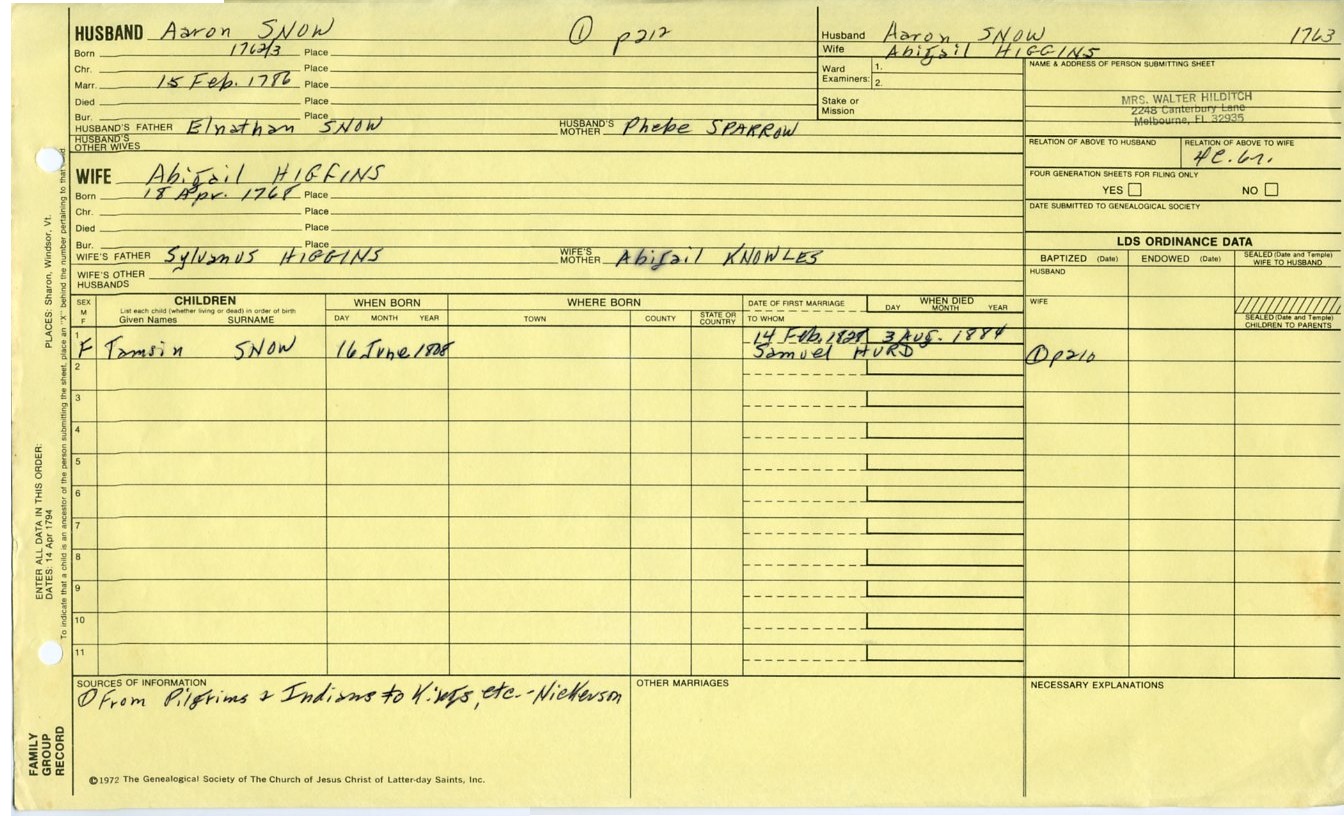 HUSBAND Aaron SNOW ① p212
Born 1762/3 Place
Chr. Place
Marr. 15 Feb. 1786 Place
Died Place
Bur. Place
HUSBAND'S FATHER Elnathan SNOW HUSBAND'S MOTHER Phebe SPARROW
HUSBAND'S OTHER WIVES
Husband Aaron SNOW 1763
Wife Abigail HIGGINS
Ward Examiners: 1.
2.
Stake or Mission
NAME & ADDRESS OF PERSON SUBMITTING SHEET
MRS. WALTER HILDITCH
2248 Canterbury Lane
Melbourne, FL 32935
RELATION OF ABOVE TO HUSBAND RELATION OF ABOVE TO WIFE
FOUR GENERATION SHEETS FOR FILING ONLY
YES NO
DATE SUBMITTED TO GENEALOGICAL SOCIETY
WIFE Abigail HIGGINS
Born 18 Apr. 1768 Place
Chr. Place
Died Place
Bur. Place
WIFE'S FATHER Sylvanus HIGGINS WIFE'S MOTHER Abigail KNOWLES
WIFE'S OTHER HUSBANDS
LDS ORDINANCE DATA
BAPTIZED (Date) ENDOWED (Date) SEALED (Date and Temple) WIFE TO HUSBAND
HUSBAND
WIFE
SEALED (Date and Temple) CHILDREN TO PARENTS
SEX M F CHILDREN WHEN BORN WHERE BORN DATE OF FIRST MARRIAGE WHEN DIED
List each child (whether living or dead) in order of birth
Given Names SURNAME DAY MONTH YEAR TOWN COUNTY STATE OR COUNTRY TO WHOM DAY MONTH YEAR
1 14 Feb. 1828 3 AUG. 1884
F Tamsin SNOW 16 June 1808 Samuel HURD ① p210
2
3
4
5
6
7
8
9
10
11
SOURCES OF INFORMATION
① From Pilgrims & Indians to Kings, etc. - Nickerson
OTHER MARRIAGES
NECESSARY EXPLANATIONS
©1972 The Genealogical Society of The Church of Jesus Christ of Latter-day Saints, Inc.
FAMILY GROUP RECORD
ENTER ALL DATA IN THIS ORDER:
DATES: 14 Apr 1794
PLACES: Sharon, Windsor, Vt.
To indicate that a child is an ancestor of the person submitting the sheet, place an "X" behind the number pertaining to that